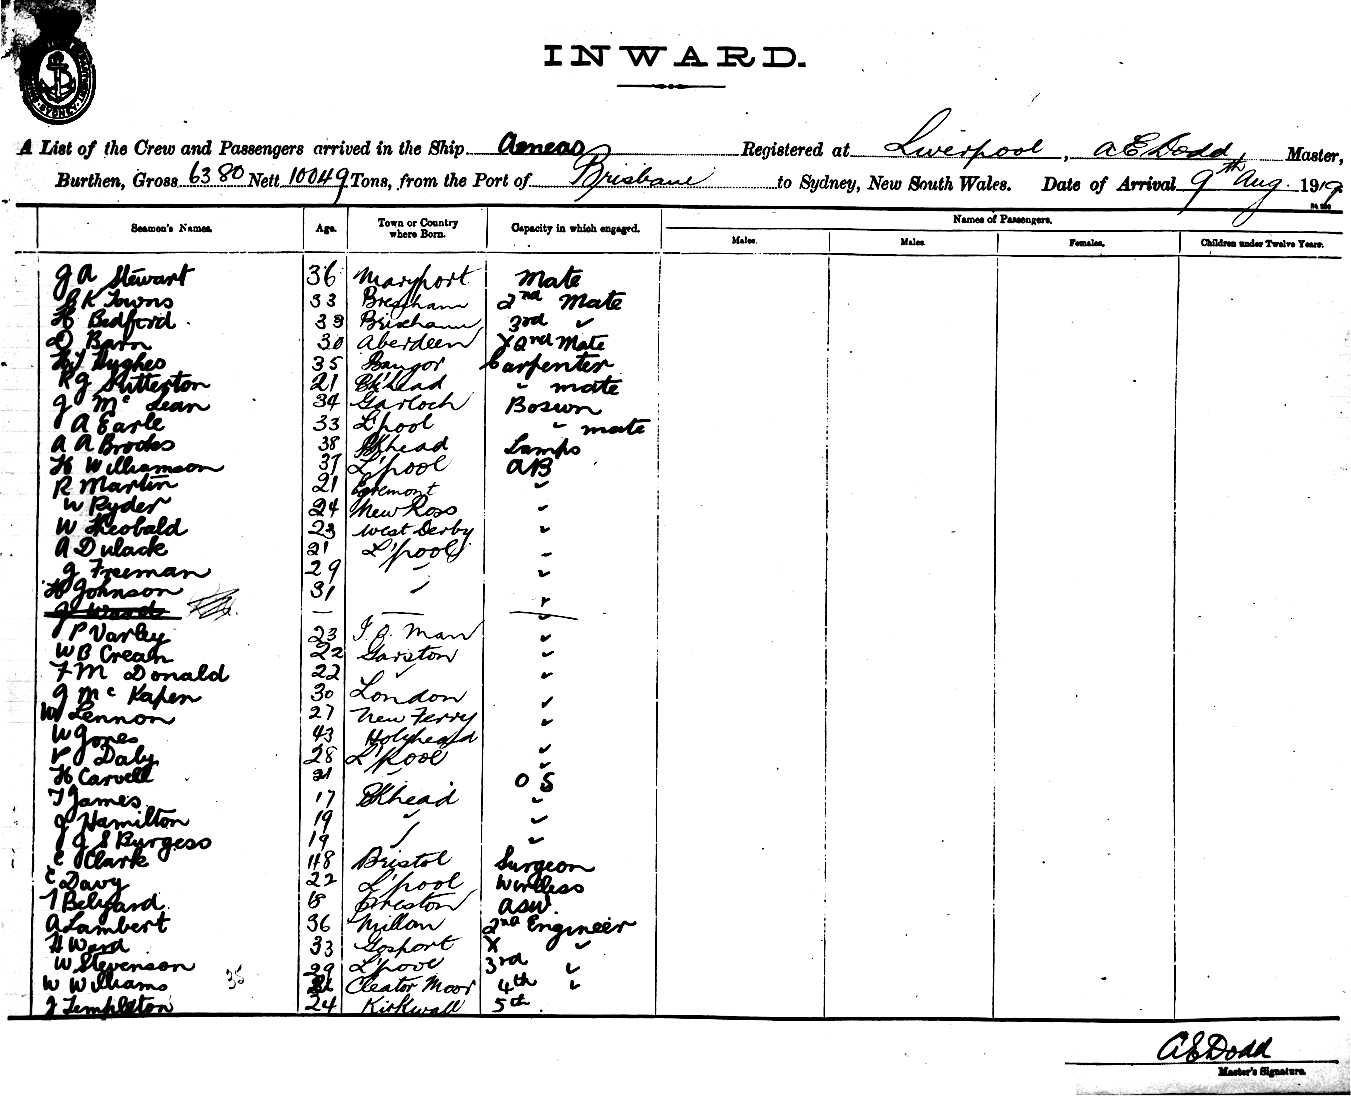 INWARD.
A List of the Crew and Passengers arrived in the Ship Aeneas Registered at Liverpool, A E Dodd Master,
Burthen, Gross 6380 Nett 10049 Tons, from the Port of Brisbane to Sydney, New South Wales. Date of Arrival 9th Aug. 1919
Seamen's Names. Age. Town or Country where Born. Capacity in which engaged. Names of Passengers.
Males. Males. Females. Children under Twelve Years.
J A Stewart 36 Maryport Mate
K Towns 33 2nd Mate
H Bedford 33 Brixham 3rd "
D Barn 30 Aberdeen X 2nd Mate
Hughes 35 Bangor Carpenter
R J Sutterton 21 B'head " mate
J Mc Lean 34 Garloch Bosun
J A Earle 33 L'pool " mate
A A Brooks 38 B'khead Lamps
H Williamson 37 L'pool AB
R Martin 21 Egremont "
W Ryder 24 New Ross "
W Theobald 23 West Derby "
A Dulack 21 L'pool "
J Freeman 29 " "
H Johnson 31 " "
J Ward — — —
J P Varley 23 I. O. Man "
W B Crean 22 Garston "
F M Donald 22 " "
J Mc Kapen 30 London "
W Lennon 27 New Ferry "
W Jones 43 Holyhead "
P J Daly 28 L'pool "
H Carvell 21 " O S
T James 17 B'khead "
J Hamilton 19 " "
J S Burgess 19 " "
E Clark 48 Bristol Surgeon
E Davy 22 L'pool Wireless
T Belyard 18 Preston ASW.
A Lambert 36 Millom 2nd Engineer
H Ward 33 Gosport X "
W Stevenson 29 L'pool 3rd "
W Williams 35 Cleator Moor 4th "
J Templeton 24 Kirkwall 5th
A E Dodd
Master's Signature.